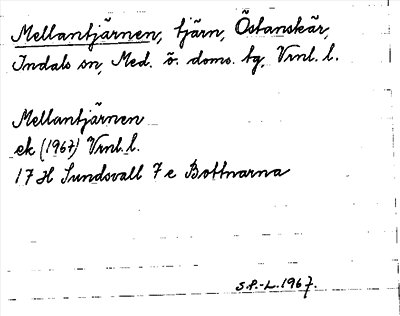 Mellantjärnen, tjärn, Östanskär,
Indals sn, Med. ö. doms. tg, Vrnl. l.
Mellantjärnen
ek (1967) Vrnl. l.
17 H Sundsvall 7 e Bottnarna
S.P.-L. 1967.